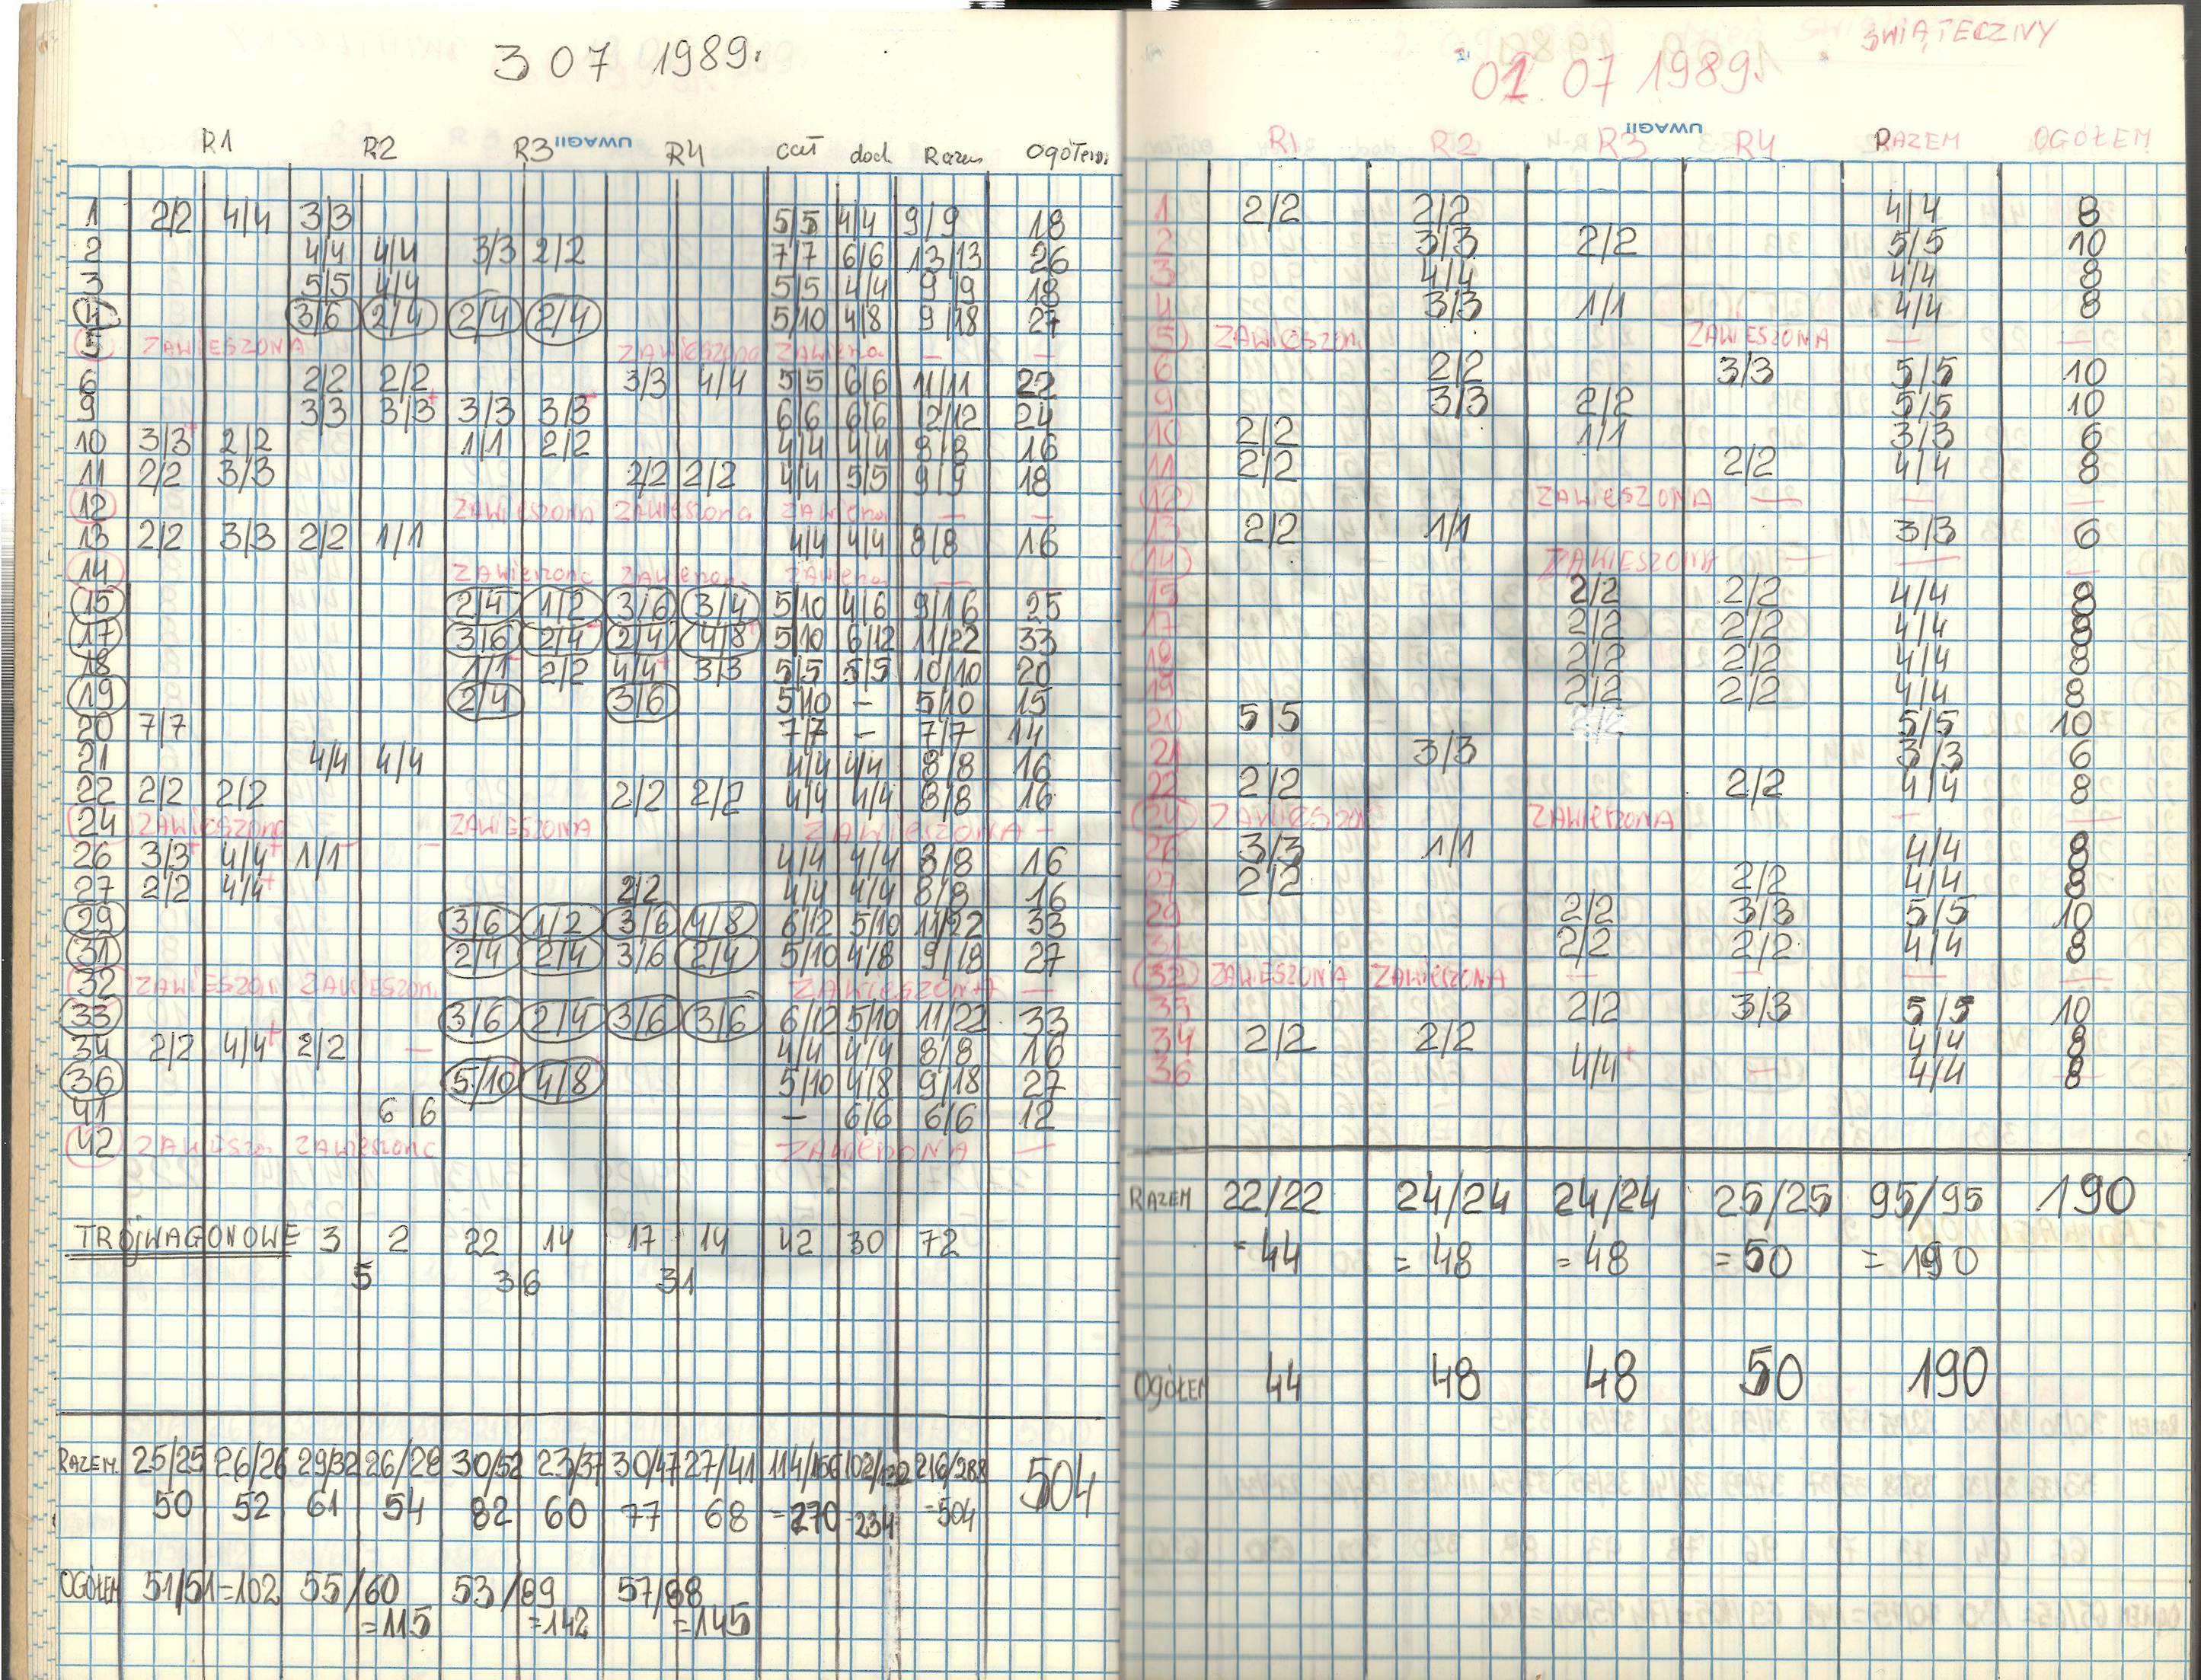 3 07 1989.
R1 R2 R3 UWAGI R4 cał dod Razem Ogółem
1 2/2 4/4 3/3 5/5 4/4 9/9 18
2 4/4 4/4 3/3 2/2 7/7 6/6 13/13 26
3 5/5 4/4 5/5 4/4 9/9 18
4 3/6 2/4 2/4 2/4 5/10 4/8 9/18 27
5 ZAWIESZONA ZAWIESZONA — —
6 2/2 2/2 3/3 4/4 5/5 6/6 11/11 22
9 3/3 3/3+ 3/3 3/3 6/6 6/6 12/12 24
10 3/3+ 2/2 1/1 2/2 4/4 4/4 8/8 16
11 2/2 3/3 2/2 2/2 4/4 5/5 9/9 18
12 ZAWIESZONA ZAWIESZONA — —
13 2/2 3/3 2/2 1/1 4/4 4/4 8/8 16
14
15 2/4 1/2 3/6 3/4 5/10 4/6 9/16 25
17 3/6 2/4 2/4 4/8 5/10 6/12 11/22 33
18 1/1 2/2 4/4+ 3/3 5/5 5/5 10/10 20
19 2/4 3/6 5/10 – 5/10 15
20 7/7 7/7 – 7/7 14
21 4/4 4/4 4/4 4/4 8/8 16
22 2/2 2/2 2/2 2/2 4/4 4/4 8/8 16
24 ZAWIESZONA ZAWIESZONA ZAWIESZONA –
26 3/3+ 4/4+ 1/1 – 4/4 4/4 8/8 16
27 2/2 4/4+ 2/2 4/4 4/4 8/8 16
29 3/6 1/2 3/6 4/8 6/12 5/10 11/22 33
31 2/4 2/4 3/6 2/4 5/10 4/8 9/18 27
32 ZAWIESZON ZAWIESZON ZAWIESZONA —
33 3/6 2/4 3/6 3/6 6/12 5/10 11/22 33
34 2/2 4/4+ 2/2 — 4/4 4/4 8/8 16
36 5/10 4/8 5/10 4/8 9/18 27
41 6/6 – 6/6 6/6 12
42 —
TRÓJWAGONOWE 3 2 22 14 17 14 42 30 72
5 36 31
RAZEM 25/25 26/26 29/32 26/28 30/52 23/37 30/47 27/41 114/156 102/132 216/288 504
50 52 61 54 82 60 77 68 =270 =234 =504
OGÓŁEM 51/51=102 55/60 53/89 57/88
=115 =142 =145
ŚWIĄTECZNY
01. 07 1989.
R1 R2 R3 UWAGI R4 RAZEM OGÓŁEM
1 2/2 2/2 4/4 8
2 3/3 2/2 5/5 10
3 4/4 4/4 8
4 3/3 1/1 4/4 8
5 ZAWIESZON ZAWIESZONA — —
6 2/2 3/3 5/5 10
9 3/3 2/2 5/5 10
10 2/2 1/1 3/3 6
11 2/2 2/2 4/4 8
12 ZAWIESZONA — — —
13 2/2 1/1 3/3 6
14 ZAWIESZONA — — —
15 2/2 2/2 4/4 8
17 2/2 2/2 4/4 8
18 2/2 2/2 4/4 8
19 2/2 2/2 4/4 8
20 5/5 5/5 10
21 3/3 3/3 6
22 2/2 2/2 4/4 8
24 ZAWIESZON ZAWIESZONA — —
26 3/3 1/1 4/4 8
27 2/2 2/2 4/4 8
29 2/2 3/3 5/5 10
31 2/2 2/2 4/4 8
32 ZAWIESZONA ZAWIESZONA — — — —
33 2/2 3/3 5/5 10
34 2/2 2/2 4/4 8
36 4/4+ — 4/4 8
RAZEM 22/22 24/24 24/24 25/25 95/95 190
=44 =48 =48 =50 =190
OGÓŁEM 44 48 48 50 190